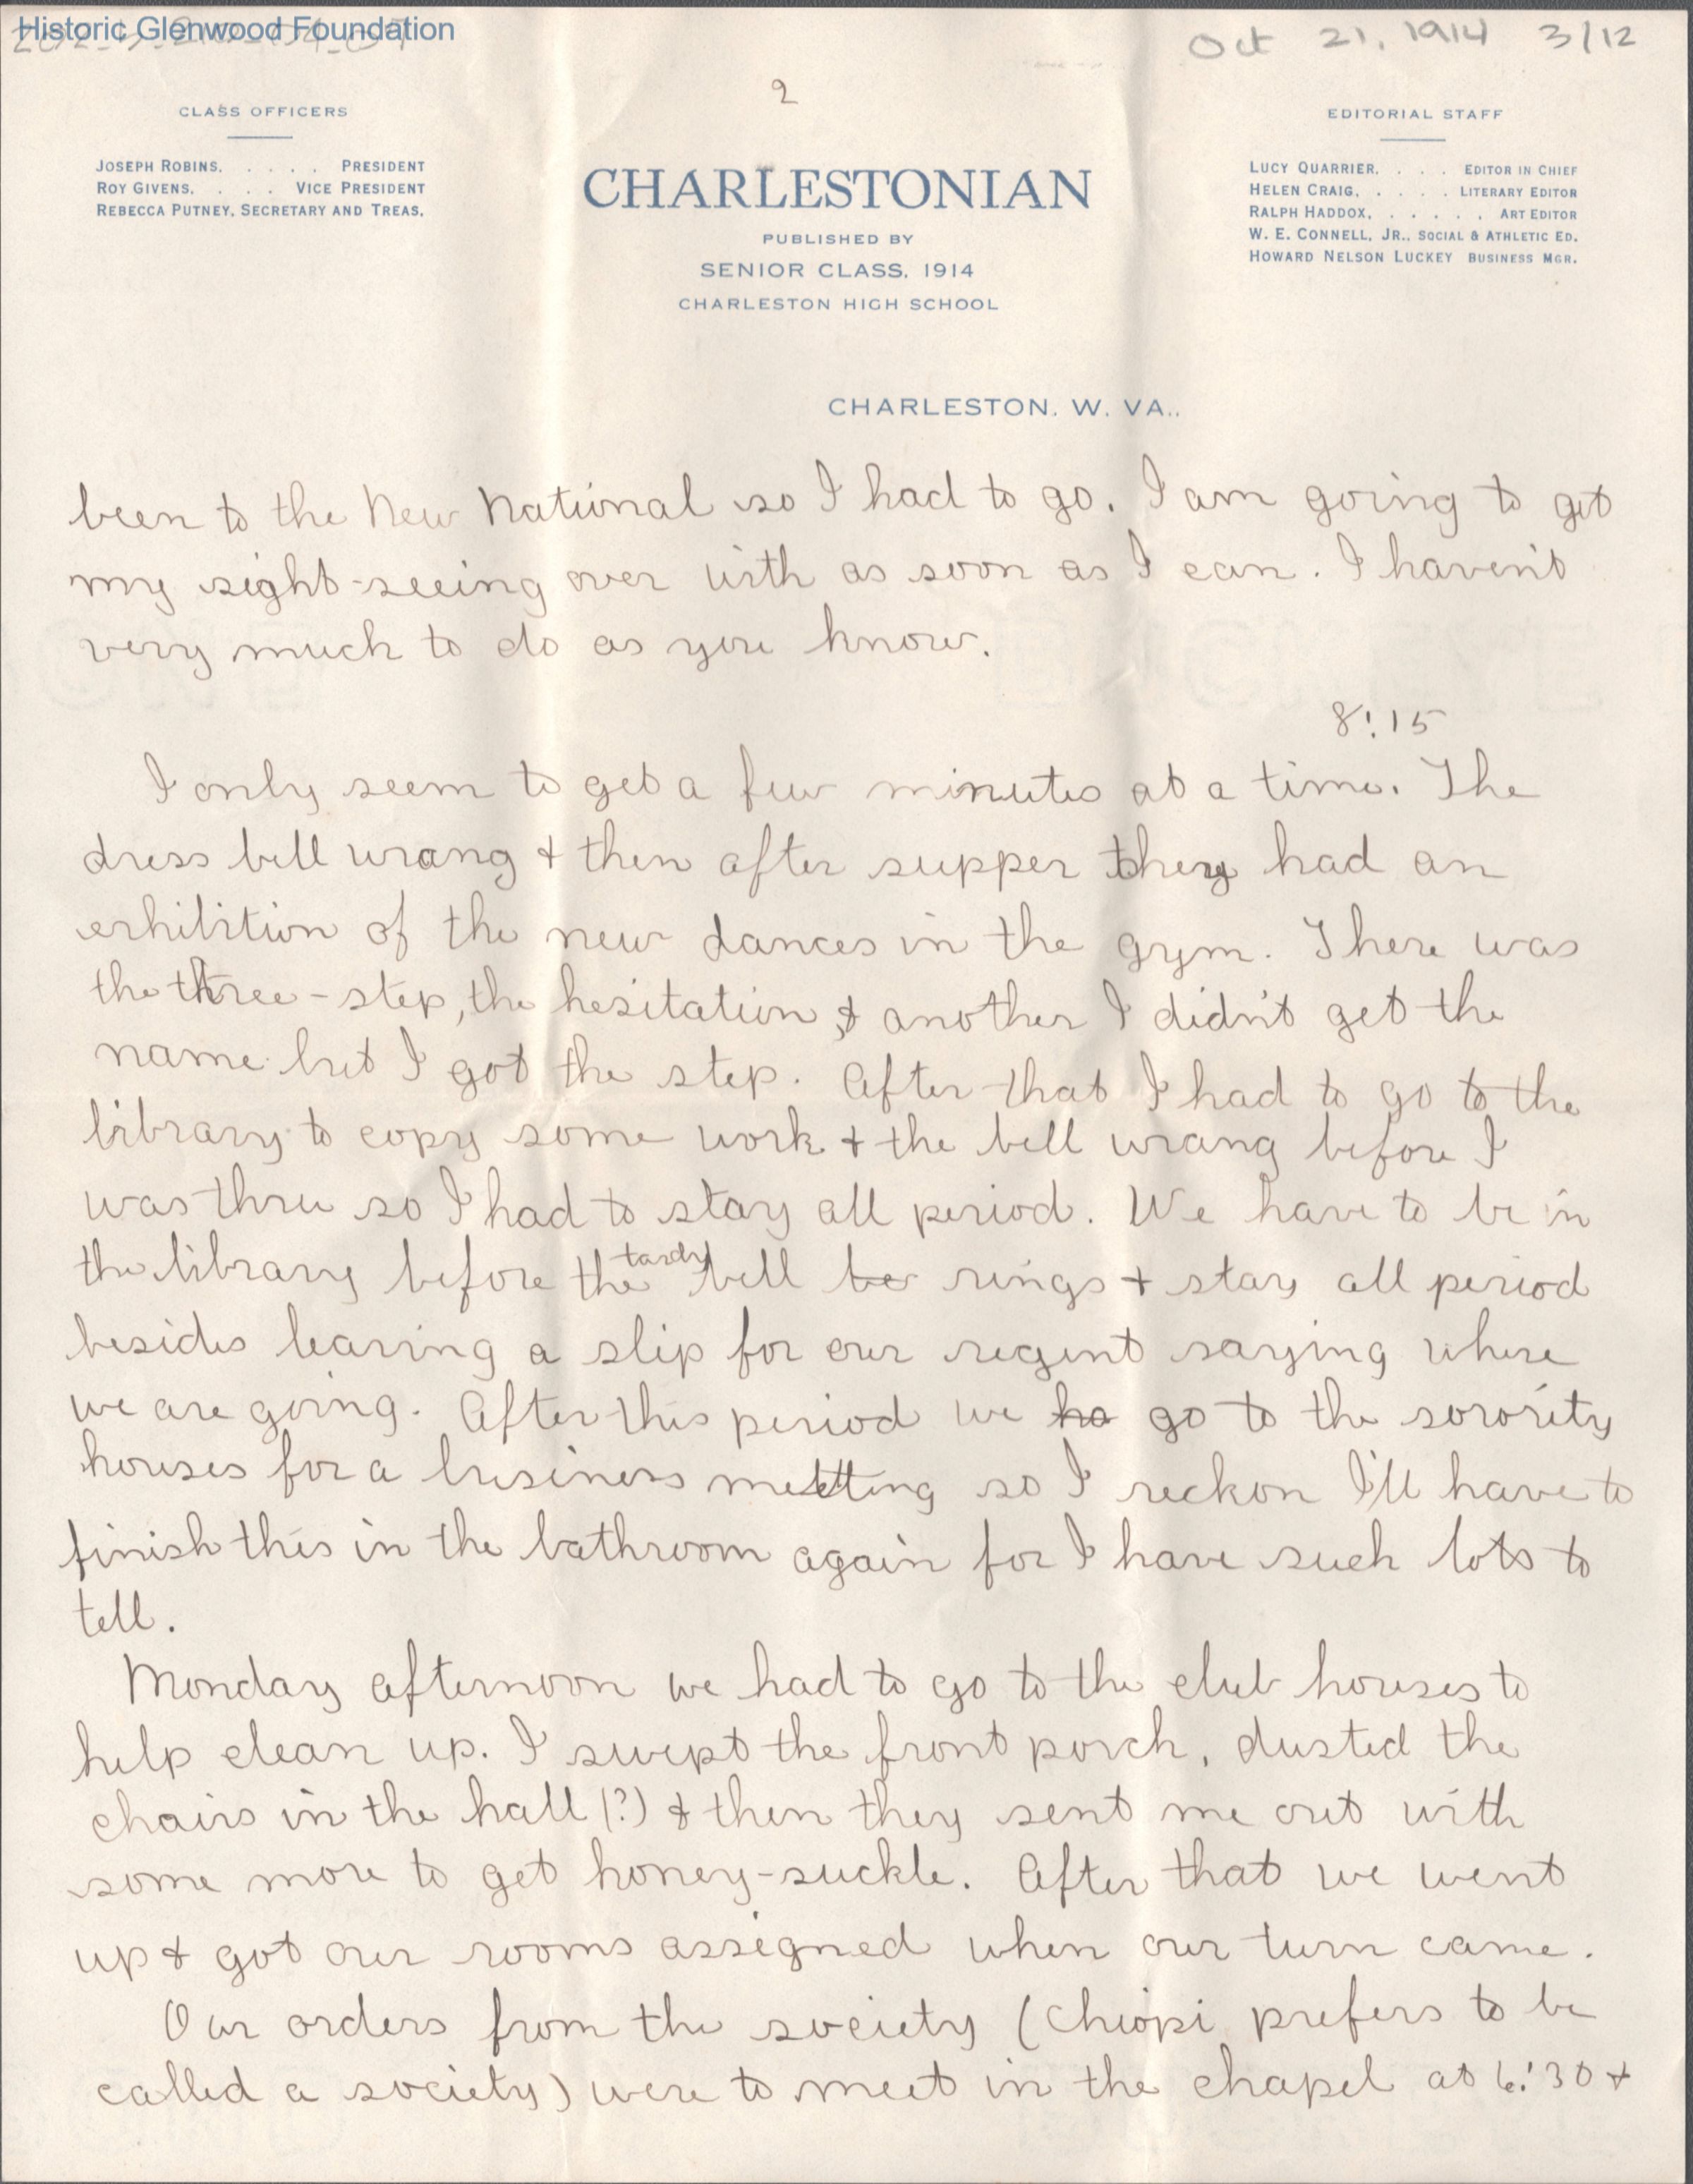 Historic Glenwood Foundation
Oct 21, 1914 3/12
2
CLASS OFFICERS
JOSEPH ROBINS. . . . . PRESIDENT
ROY GIVENS. . . . VICE PRESIDENT
REBECCA PUTNEY, SECRETARY AND TREAS.
CHARLESTONIAN
PUBLISHED BY
SENIOR CLASS, 1914
CHARLESTON HIGH SCHOOL
EDITORIAL STAFF
LUCY QUARRIER. . . . EDITOR IN CHIEF
HELEN CRAIG, . . . . LITERARY EDITOR
RALPH HADDOX, . . . . . ART EDITOR
W. E. CONNELL, JR., SOCIAL & ATHLETIC ED.
HOWARD NELSON LUCKEY BUSINESS MGR.
CHARLESTON, W. VA.,
been to the New National so I had to go. I am going to get
my sight-seeing over with as soon as I can. I haven't
very much to do as you know.
8:15
I only seem to get a few minutes at a time. The
dress bell wrang & then after supper they had an
exhibition of the new dances in the gym. There was
the three-step, the hesitation, & another I didn't get the
name but I got the step. After that I had to go to the
library to copy some work & the bell wrang before I
was thru so I had to stay all period. We have to be in
the library before the tardy bell be rings & stay all period
besides leaving a slip for our regent saying where
we are going. After this period we ha go to the sorority
houses for a business meeting so I reckon I'll have to
finish this in the bathroom again for I have such lots to
tell.
Monday afternoon we had to go to the club houses to
help clean up. I swept the front porch, dusted the
chairs in the hall (?) & then they sent me out with
some more to get honey-suckle. After that we went
up & got our rooms assigned when our turn came.
Our orders from the society (Chiopi prefers to be
called a society) were to meet in the chapel at 6:30 &